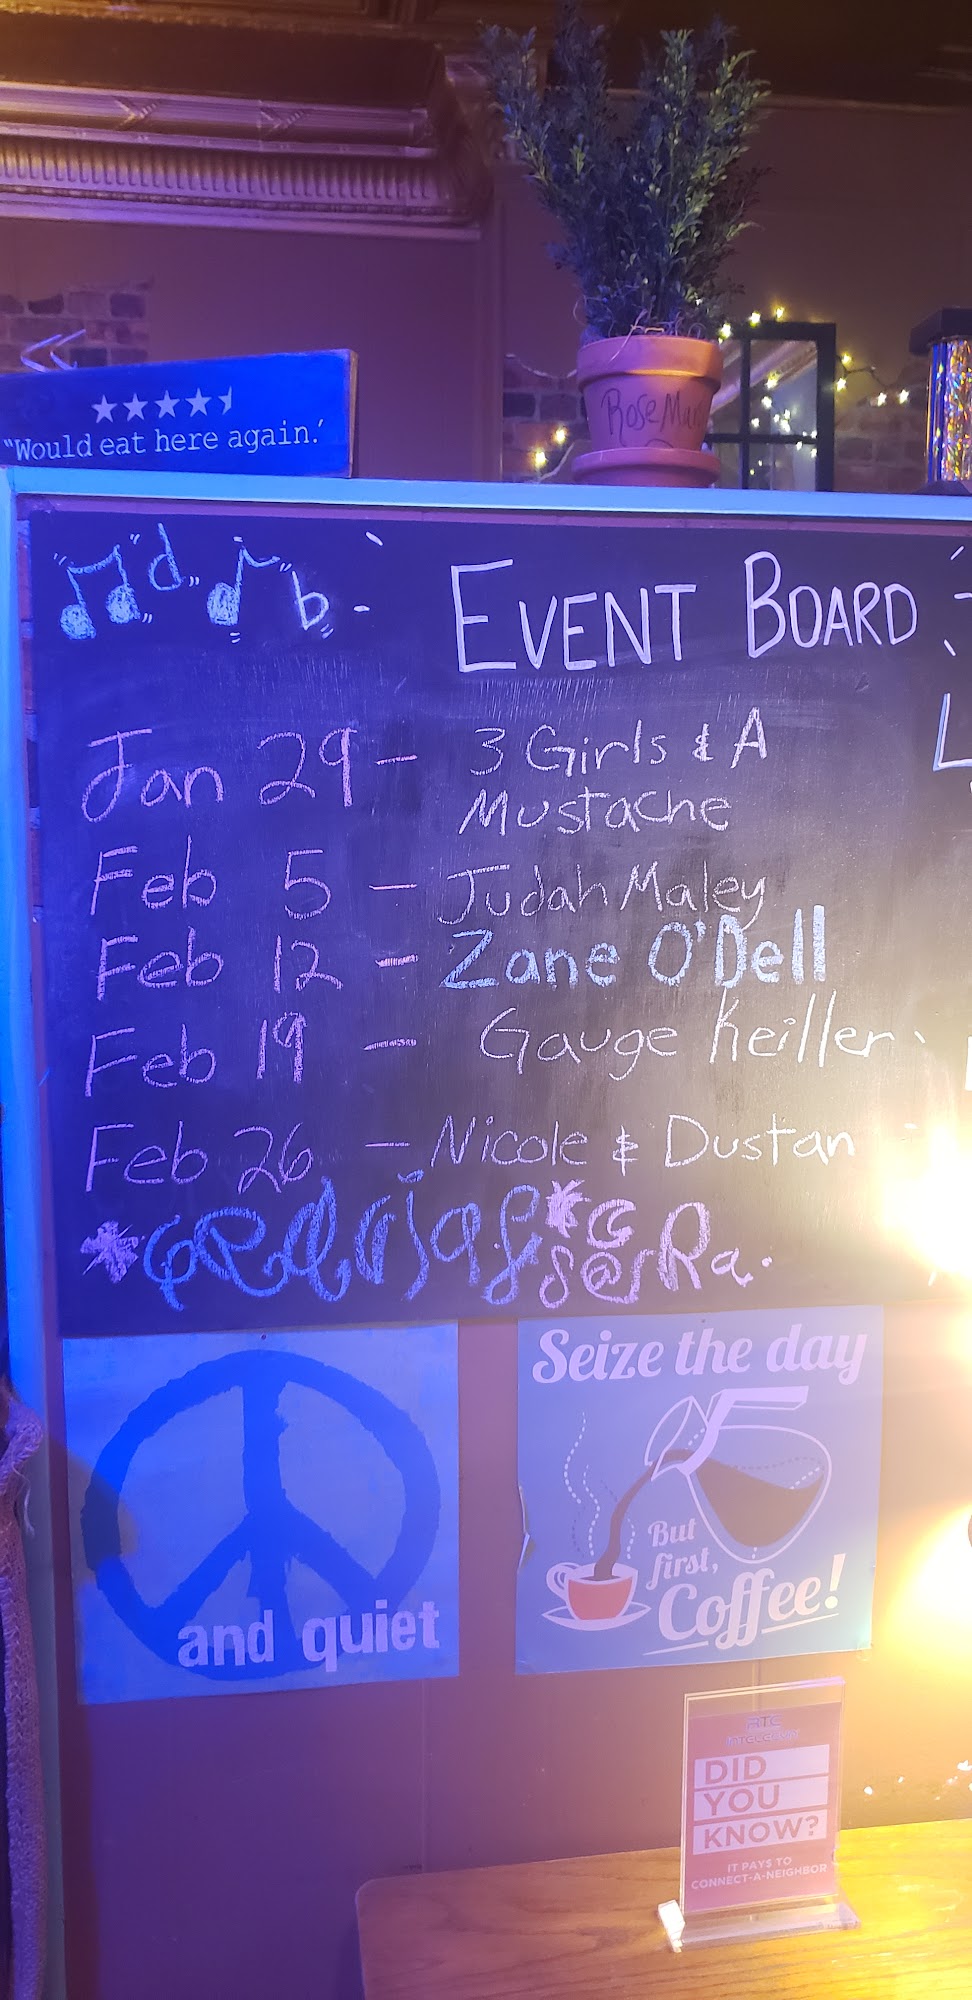 "Would eat here again.'
RoseMary
EVENT BOARD
Jan 29 - 3 Girls & A
Mustache
Feb 5 - Judah Maley
Feb 12 - Zane O'Dell
Feb 19 - Gauge Keiller
Feb 26 - Nicole & Dustan
and quiet
Seize the day
But
first,
Coffee!
RTC
DID
YOU
KNOW?
IT PAYS TO
CONNECT-A-NEIGHBOR